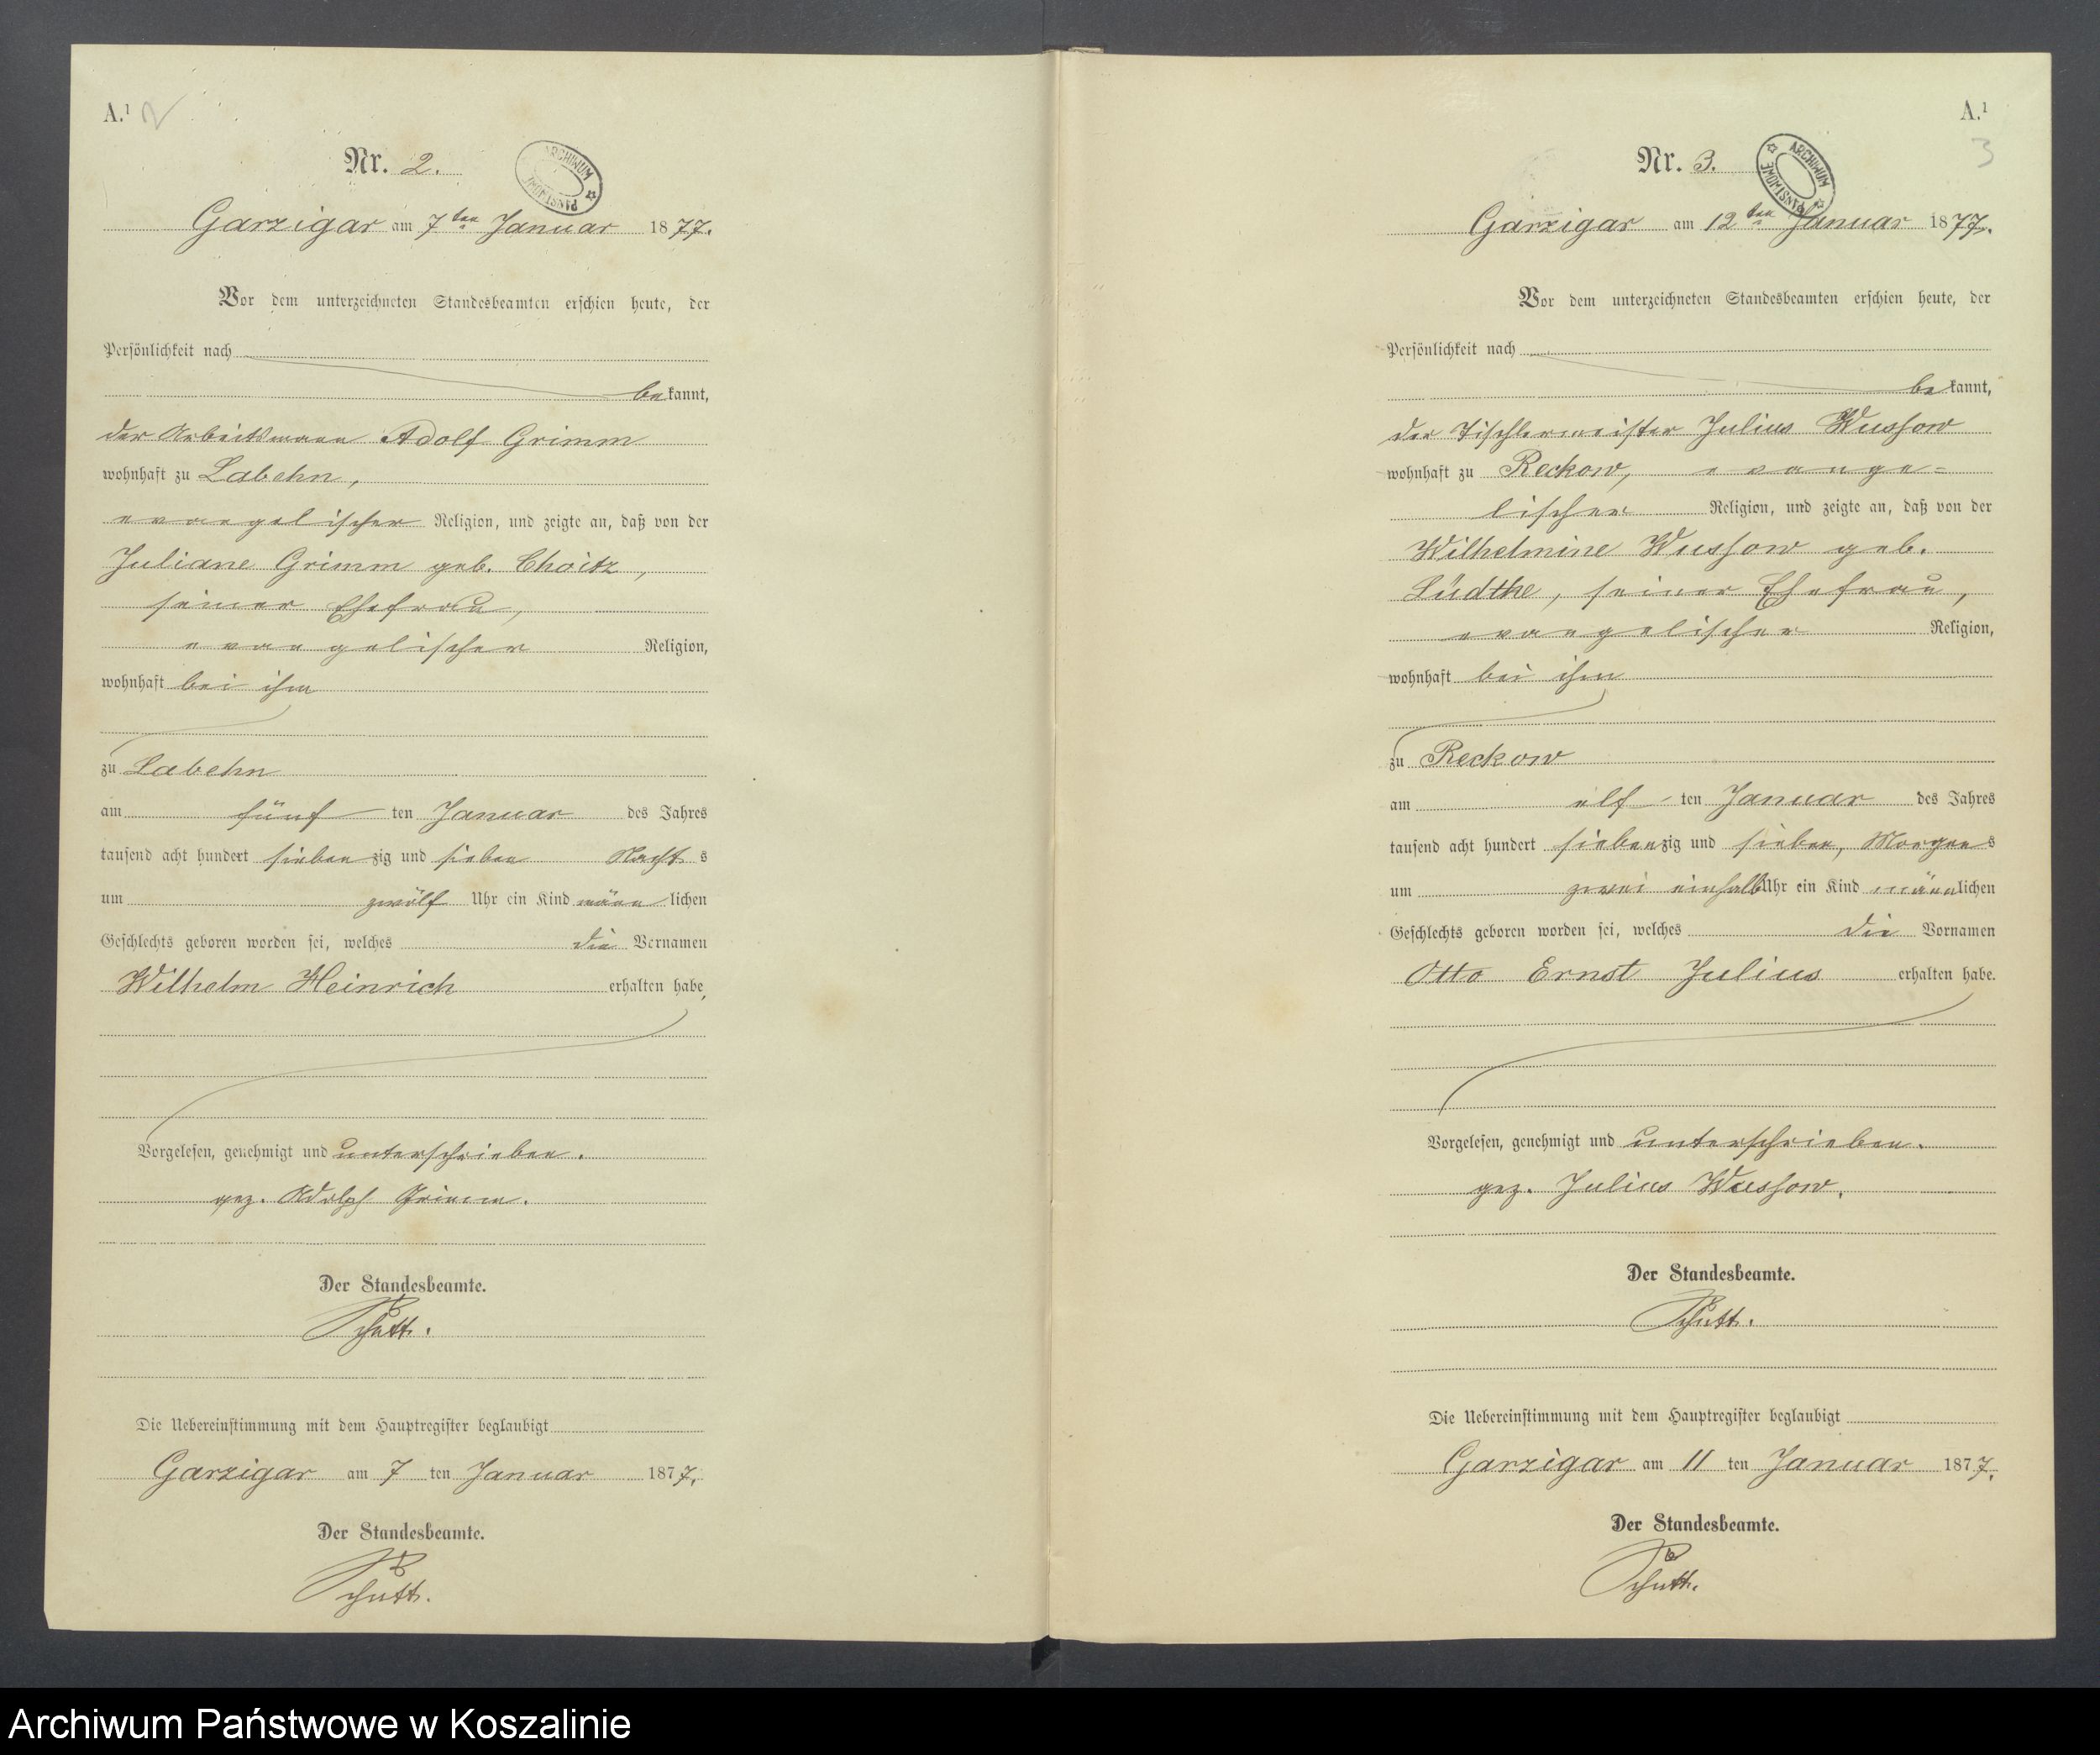 A.¹ 2
Nr. 2.
ARCHIWUM PAŃSTWOWE
Garzigar am 7ten Januar 1877.
Vor dem unterzeichneten Standesbeamten erschien heute, der
Persönlichkeit nach
bekannt,
der Arbeitsmann Adolf Grimm
wohnhaft zu Labehn,
evangelischer Religion, und zeigte an, daß von der
Juliane Grimm geb. Choitz,
seiner Ehefrau,
evangelischer Religion,
wohnhaft bei ihm
zu Labehn
am fünf ten Januar des Jahres
tausend acht hundert siebenzig und sieben Nachts
um zwölf Uhr ein Kind männlichen
Geschlechts geboren worden sei, welches die Vornamen
Wilhelm Heinrich erhalten habe,
Vorgelesen, genehmigt und unterschrieben.
gez. Adolph Grimm.
Der Standesbeamte.
Schutt.
Die Uebereinstimmung mit dem Hauptregister beglaubigt
Garzigar am 7 ten Januar 1877.
Der Standesbeamte.
Schutt.
A.¹
3
Nr. 3.
ARCHIWUM PAŃSTWOWE
Garzigar am 12ten Januar 1877.
Vor dem unterzeichneten Standesbeamten erschien heute, der
Persönlichkeit nach
bekannt,
der Tischlermeister Julius Wussow
wohnhaft zu Reckow, evange=
lischer Religion, und zeigte an, daß von der
Wilhelmine Wussow geb.
Lüdtke, seiner Ehefrau,
evangelischer Religion,
wohnhaft bei ihm
zu Reckow
am elf ten Januar des Jahres
tausend acht hundert siebenzig und sieben, Morgens
um zwei einhalb Uhr ein Kind männlichen
Geschlechts geboren worden sei, welches die Vornamen
Otto Ernst Julius erhalten habe.
Vorgelesen, genehmigt und unterschrieben.
gez. Julius Wussow.
Der Standesbeamte.
Schutt.
Die Uebereinstimmung mit dem Hauptregister beglaubigt
Garzigar am 11 ten Januar 1877.
Der Standesbeamte.
Schutt.
Archiwum Państwowe w Koszalinie